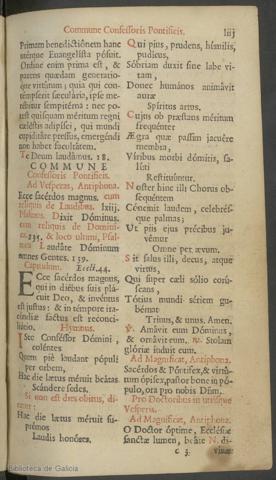 Commune Confessoris Pontificis. liij
Primam benedictiónem hanc
utérque Euangelista pósuit.
Ordine enim prima est, &
parens quædam generatio-
que virtútum; quia qui con-
témpserit sæculária, ipse me-
rébitur sempitérna: nec po-
test quisquam méritum regni
cæléstis adipísci, qui mundi
cupiditáte pressus, emergéndi
non habet facultátem.
Te Deum laudámus. 18.
COMMUNE
Confessoris Pontificis.
Ad Vesperas, Antiphona.
Ecce sacérdos magnus. cum
reliquis de Laudibus.
Psalmus. Dixit Dóminus.
cum reliquis de Domini-
235. & loco ultimi, Psal-
Laudáte Dóminum
omnes Gentes. 139.
Capitulum. Eccli. 44.
Ecce sacérdos magnus,
qui in diébus suis plá-
cuit Deo, & inventus
est justus: & in témpore ira-
cúndiæ factus est reconci-
liátio. Hymnus.
Iste Conféssor Dómini,
coléntes
Quem piè laudant pópuli
per orbem,
Hac die lætus méruit beátas
Scándere sedes.
Si non est dies obitus, di-
Hac die lætus méruit su-
prémos
Laudis honóres.
Qui pius, prudens, húmilis,
pudícus,
Sóbriam duxit sine labe vi-
tam,
Donec humános animávit
auræ
Spíritus artus.
Cujus ob præstans méritum
frequénter
Ægra quæ passim jacuére
membra,
Víribus morbi dómitis, sa-
lúti
Restituúntur.
Noster hinc illi Chorus ob-
sequéntem
Cóncinit laudem, celebrés-
que palmas;
Ut piis ejus précibus ju-
vémur
Omne per ævum.
Sit salus illi, decus, atque
virtus,
Qui super cæli sólio corús-
cans,
Tótius mundi sériem gu-
bérnat
Trinus, & unus. Amen.
℣. Amávit eum Dóminus,
& ornávit eum. ℟. Stolam
glóriæ índuit eum.
Ad Magnificat, Antiphona.
Sacérdos & Póntifex, & virtú-
tum ópifex, pastor bone in pó-
pulo, ora pro nobis Dóm.
Pro Doctoribus in utrisque
Vesperis.
Ad Magnificat, Antiphona.
O Doctor óptime, Ecclésiæ
sanctæ lumen, beáte N. di-
c 3.
Biblioteca de Galicia